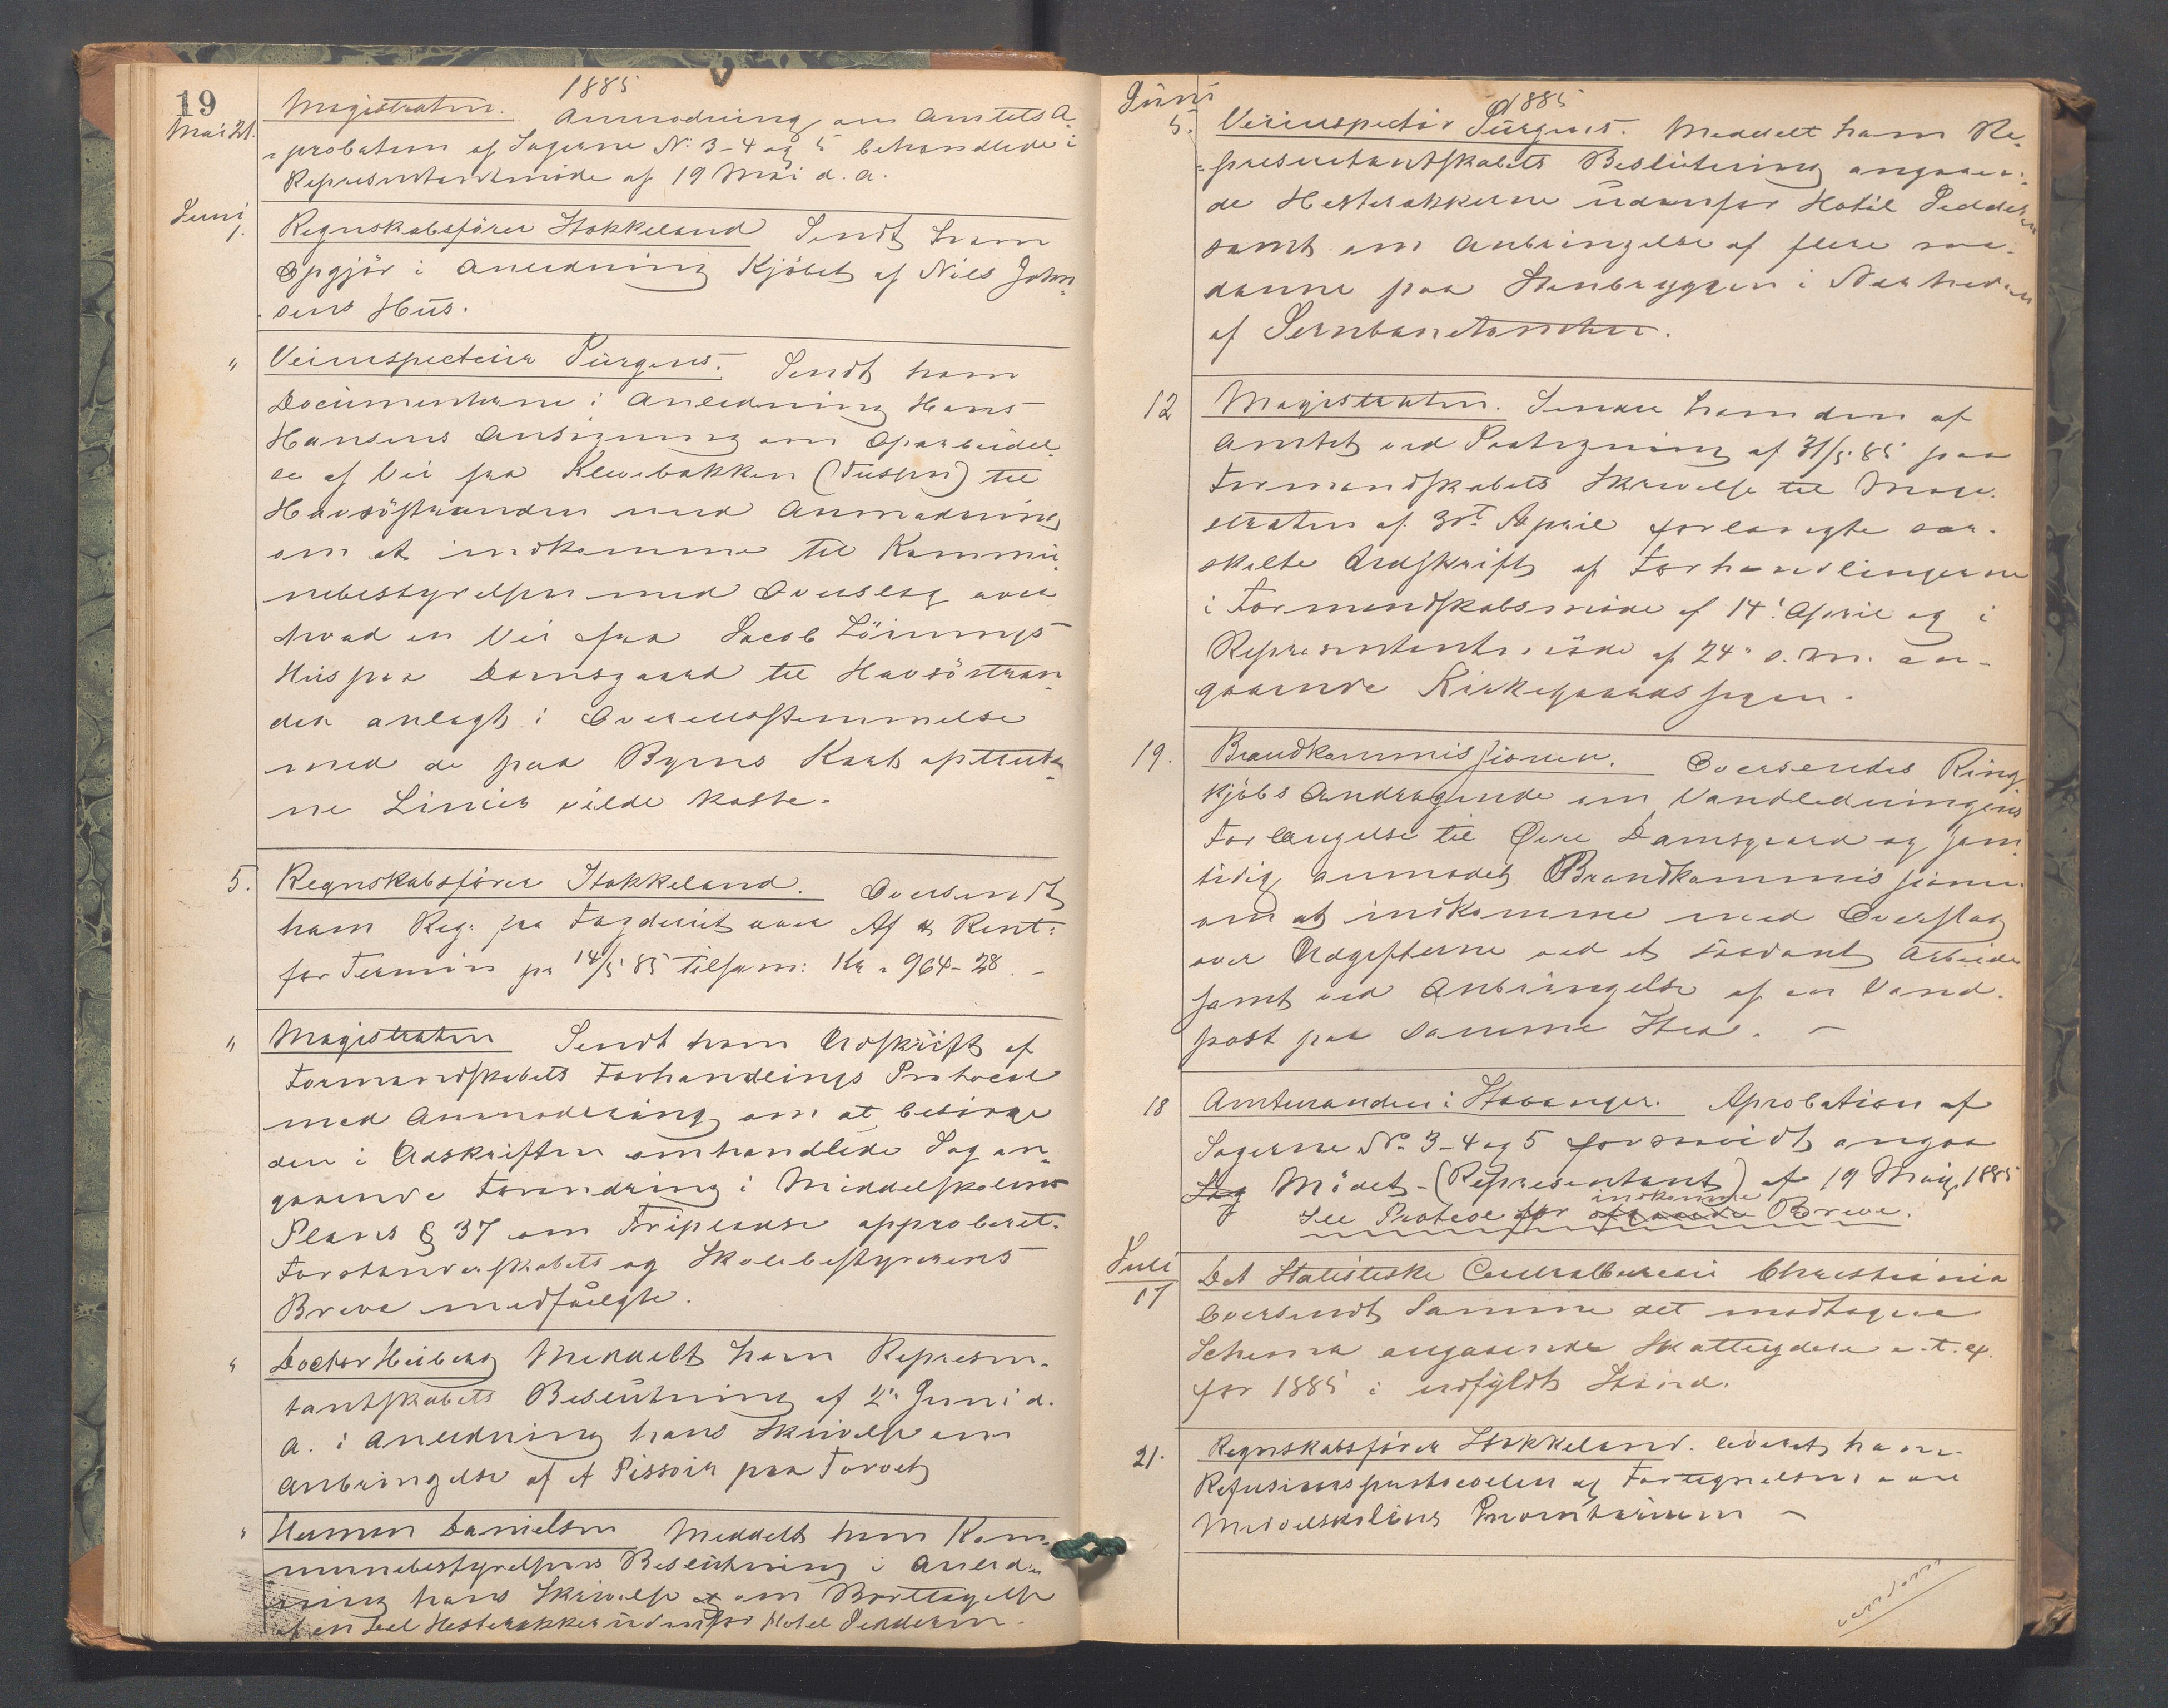 19
1885
Mai 21. Magistraten. Anmodning om Amtets A-
probation af Sagerne No. 3-4 og 5 behandlede i
Representantmöde af 19 Mai d. a.
Juni 1. Regnskabsförer Stokkeland Sendt ham
Opgjör i Anledning Kjöbet af Niels John-
sens Hus.
" Veiinspecteur Jürgens. Sendt ham
Documenterne i Anledning Hans
Hansens Ansögning om Oparbeidel-
se af Vei fra Klevebakken (Tuspen) til
Havsöstranden med Anmodning
om at indkomme til Kommu-
nebestyrelsen med Overslag over
hvad en Vei fra Jacob Löinings
Hus paa Damsgaard til Havsöstran-
den anlagt i Overensstemmelse
med de paa Byens Kart optrukk-
ne Linier vilde koste.
5. Regnskabsförer Stokkeland. Oversendt
ham Reg. fra Fogderiet over Af & Rent:
for Termin pr 14/5 85 tilsam: Kr. 964-28. -
" Magistraten Sendt ham Udskrift af
Formandskabets Forhandlings Protocol
med Anmodning om at besörge
den i Udskriften omhandlede Sag an-
gaaende Forandring i Middelskolens
Plans § 37 om Fripladse approberet.
Forstanderskabets og Skolebestyrerens
Breve medfulgte.
" Doctor Heiberg Meddelt ham Represen-
tantskabets Beslutning af 2. Juni d.
a. i Anledning hans Skrivelse om
Anbringelse af et Pissoir paa Torvet
" Herman Danielsen Meddelt ham Kom-
munebestyrelsens Beslutning i Anled-
ning hans Skrivelse om Borttagelse
af en Deel Hesterakker udenfor Hotel Jedderen.
1885
Juni 5. Veiinspectör Jürgens. Meddelt ham Re-
presentantskabets Beslutning angaaen-
de Hesterakkerne udenfor Hotel Jedderen
samt om Anbringelse af flere saa-
danne paa Stenbryggen i Nærheden
af Jernbanetomten.
12 Magistraten. Sendte ham den af
Amtet ved Paategning af 31/5 85 paa
Formandskabets Skrivelse til Magi-
straten af 30. April forlangte sær-
skilte Udskrift af Forhandlingerne
i Formandskabsmöde af 14. April og i
Representantmöde af 24. s. m. an-
gaaende Kirkegaardssagen.
19. Brandkommissionen. Oversendes Ring
kjöbs Andragende om Vandledningens
Forlængelse til Övre Damsgaard og sam-
tidig anmodet Brandkommissionen
om at indkomme med Overslag
over Udgifterne ved et saadant Arbeide
samt ved Anbringelse af en Vand-
post paa samme Sted. -
18 Amtmanden i Stavanger. Aprobation af
Sagerne No. 3-4 og 5 forsaavidt angaa
Sag Mödet - (Representant) af 19 Mai 1885
See Protocol for afgaaende indkomne Breve.
Juli 17 Det Statistiske Centralbureau Christiania
Oversendt Samme det modtagne
Schema angaaende Skatteydere e. t. c.
for 1885 i udfyldt Stand.
21. Regnskabsförer Stokkeland. leveret ham
Refusionsprotocollen og Fortegnelsen over
Middelskolens Inventarium -
vendom